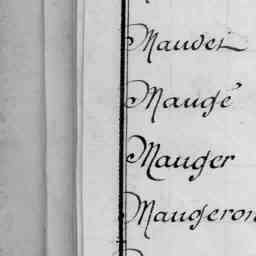 Maudet
Maugé
Mauger
Maugeron